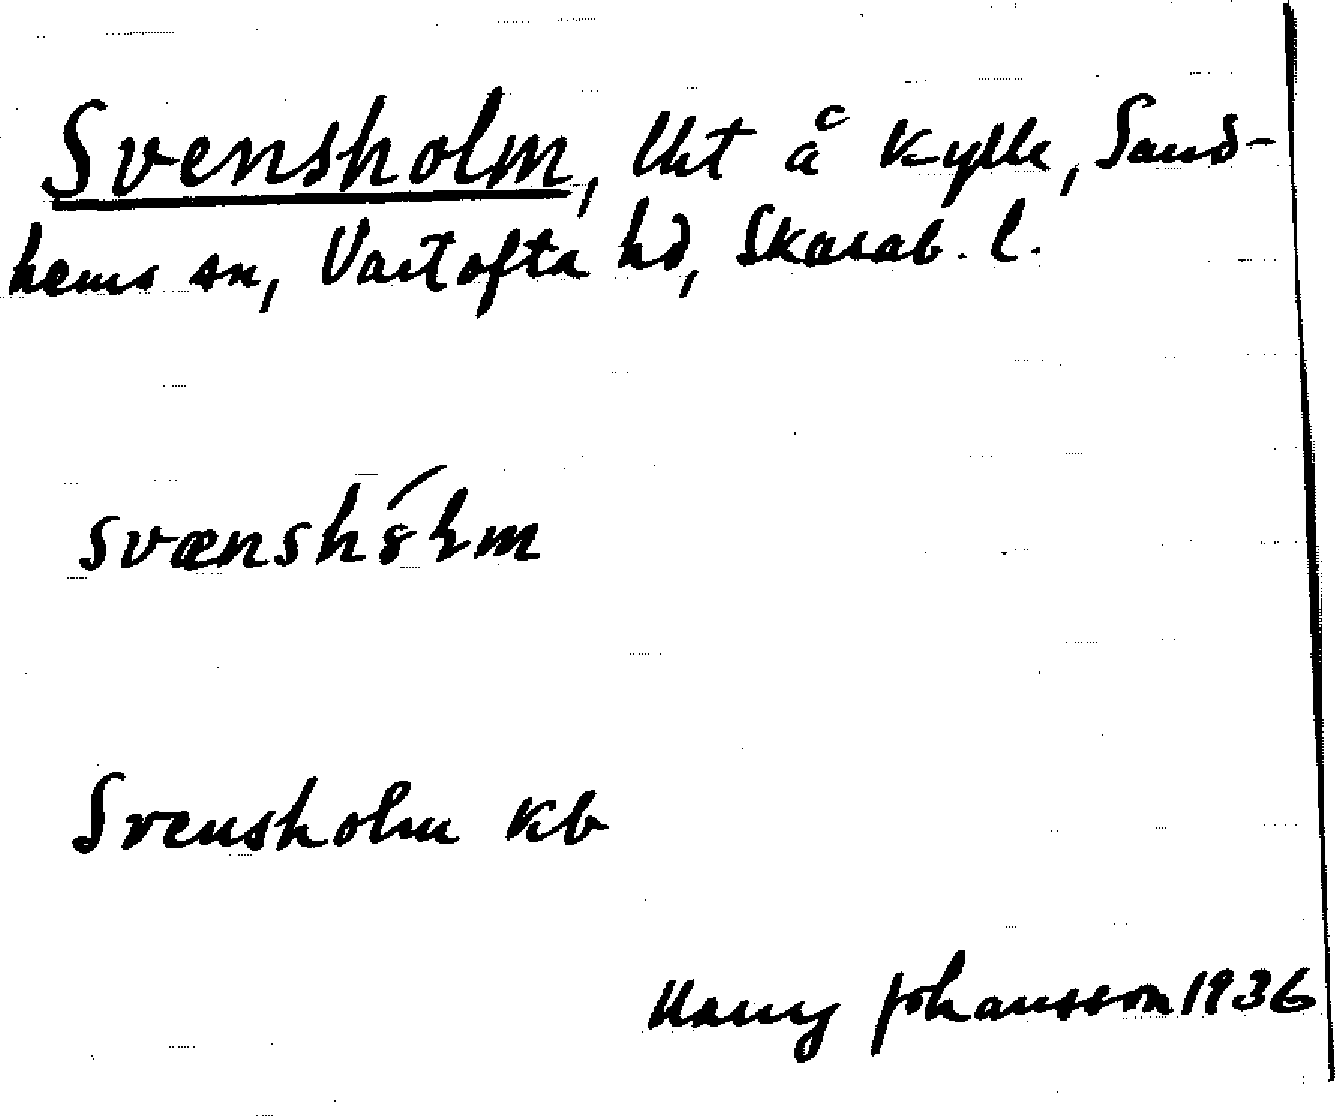 Svensholm, lht å Kylle, Sand-
hems sn, Vartofta hd, Skarab. l.
svænshólm
Svensholm kb
Harry Johansson 1936